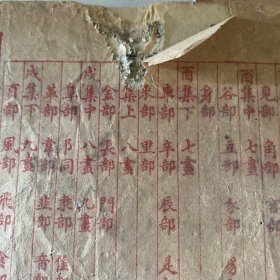 見部 角部 言部
酉集中 七畫
谷部 豆部 豕部
身部
酉集下 七畫
車部 辛部 辰部 辵
釆部 里部
戌集上 八畫
金部 長部 門部
戌集中 八畫 九畫
阜部 阝同 隶部 隹
革部 韋部 韭部 音部
戌集下 九畫
頁部 風部 飛部 食部